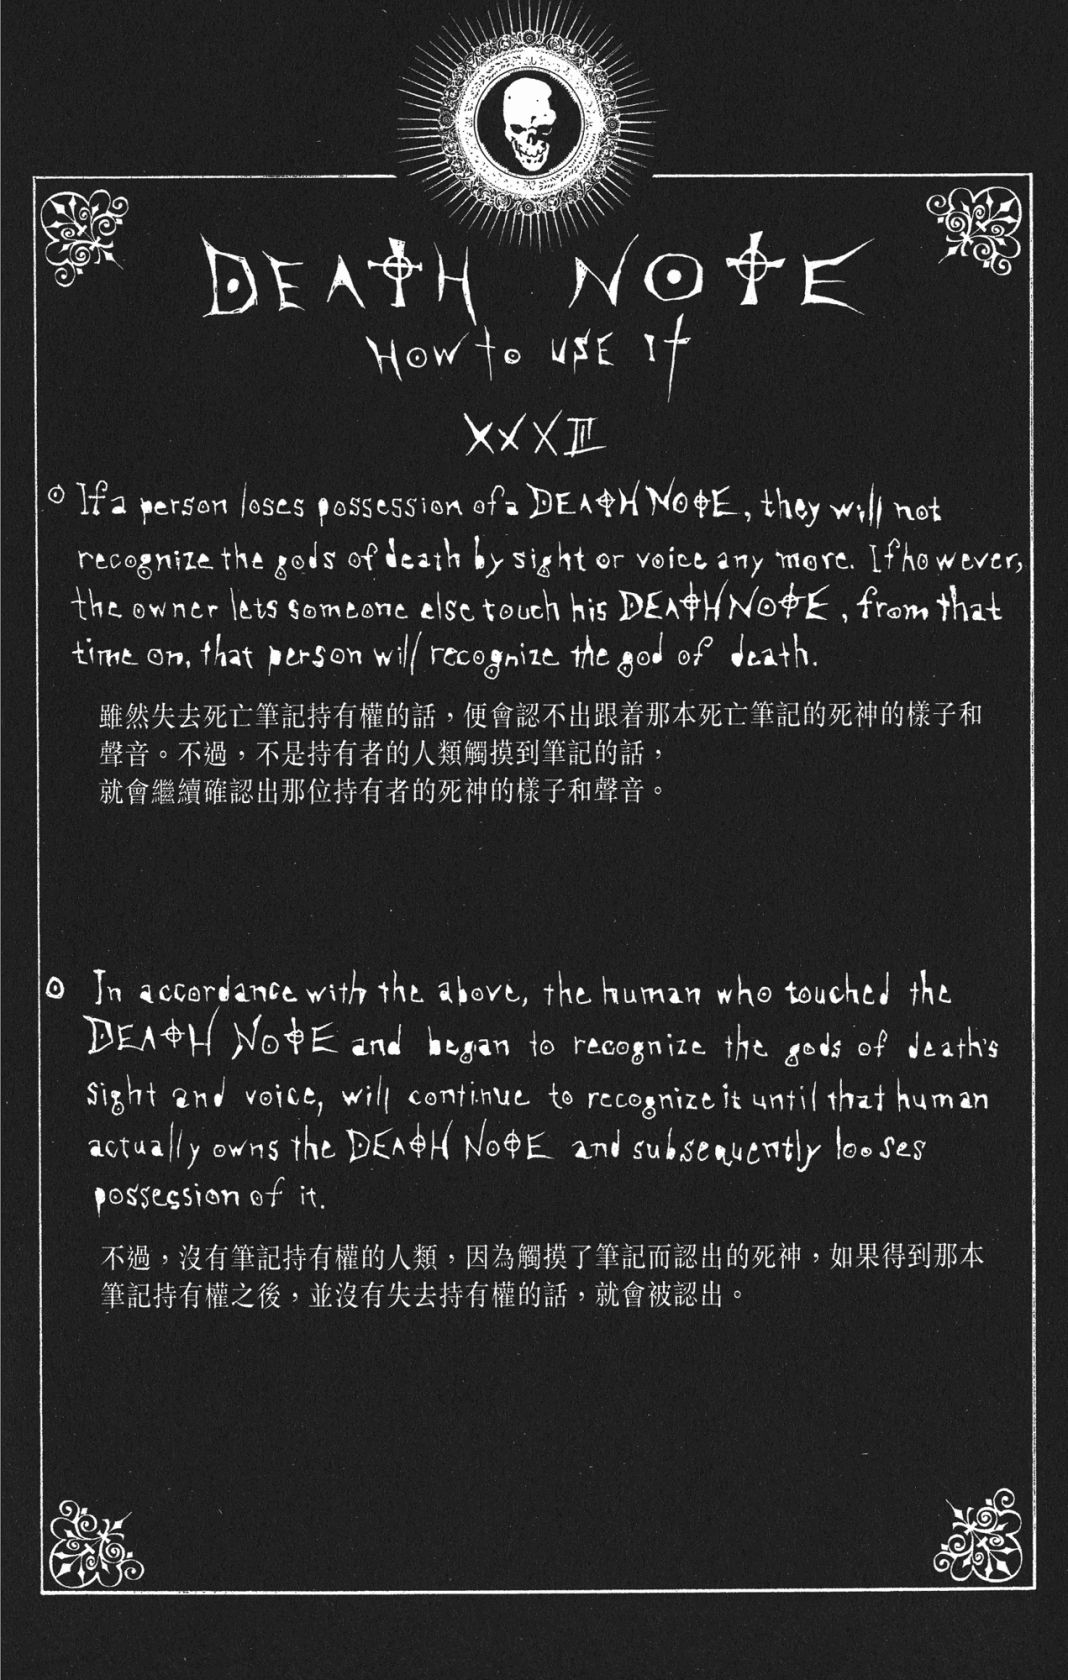 DEATH NOTE
HOW to USE It
XXXIII
If a person loses possession of a DEATH NOTE, they will not
recognize the gods of death by sight or voice any more. If however,
the owner lets someone else touch his DEATH NOTE, from that
time on, that person will recognize the god of death.
雖然失去死亡筆記持有權的話，便會認不出跟着那本死亡筆記的死神的樣子和
聲音。不過，不是持有者的人類觸摸到筆記的話，
就會繼續確認出那位持有者的死神的樣子和聲音。
In accordance with the above, the human who touched the
DEATH NOTE and began to recognize the gods of death's
sight and voice, will continue to recognize it until that human
actually owns the DEATH NOTE and subsequently looses
possession of it.
不過，沒有筆記持有權的人類，因為觸摸了筆記而認出的死神，如果得到那本
筆記持有權之後，並沒有失去持有權的話，就會被認出。